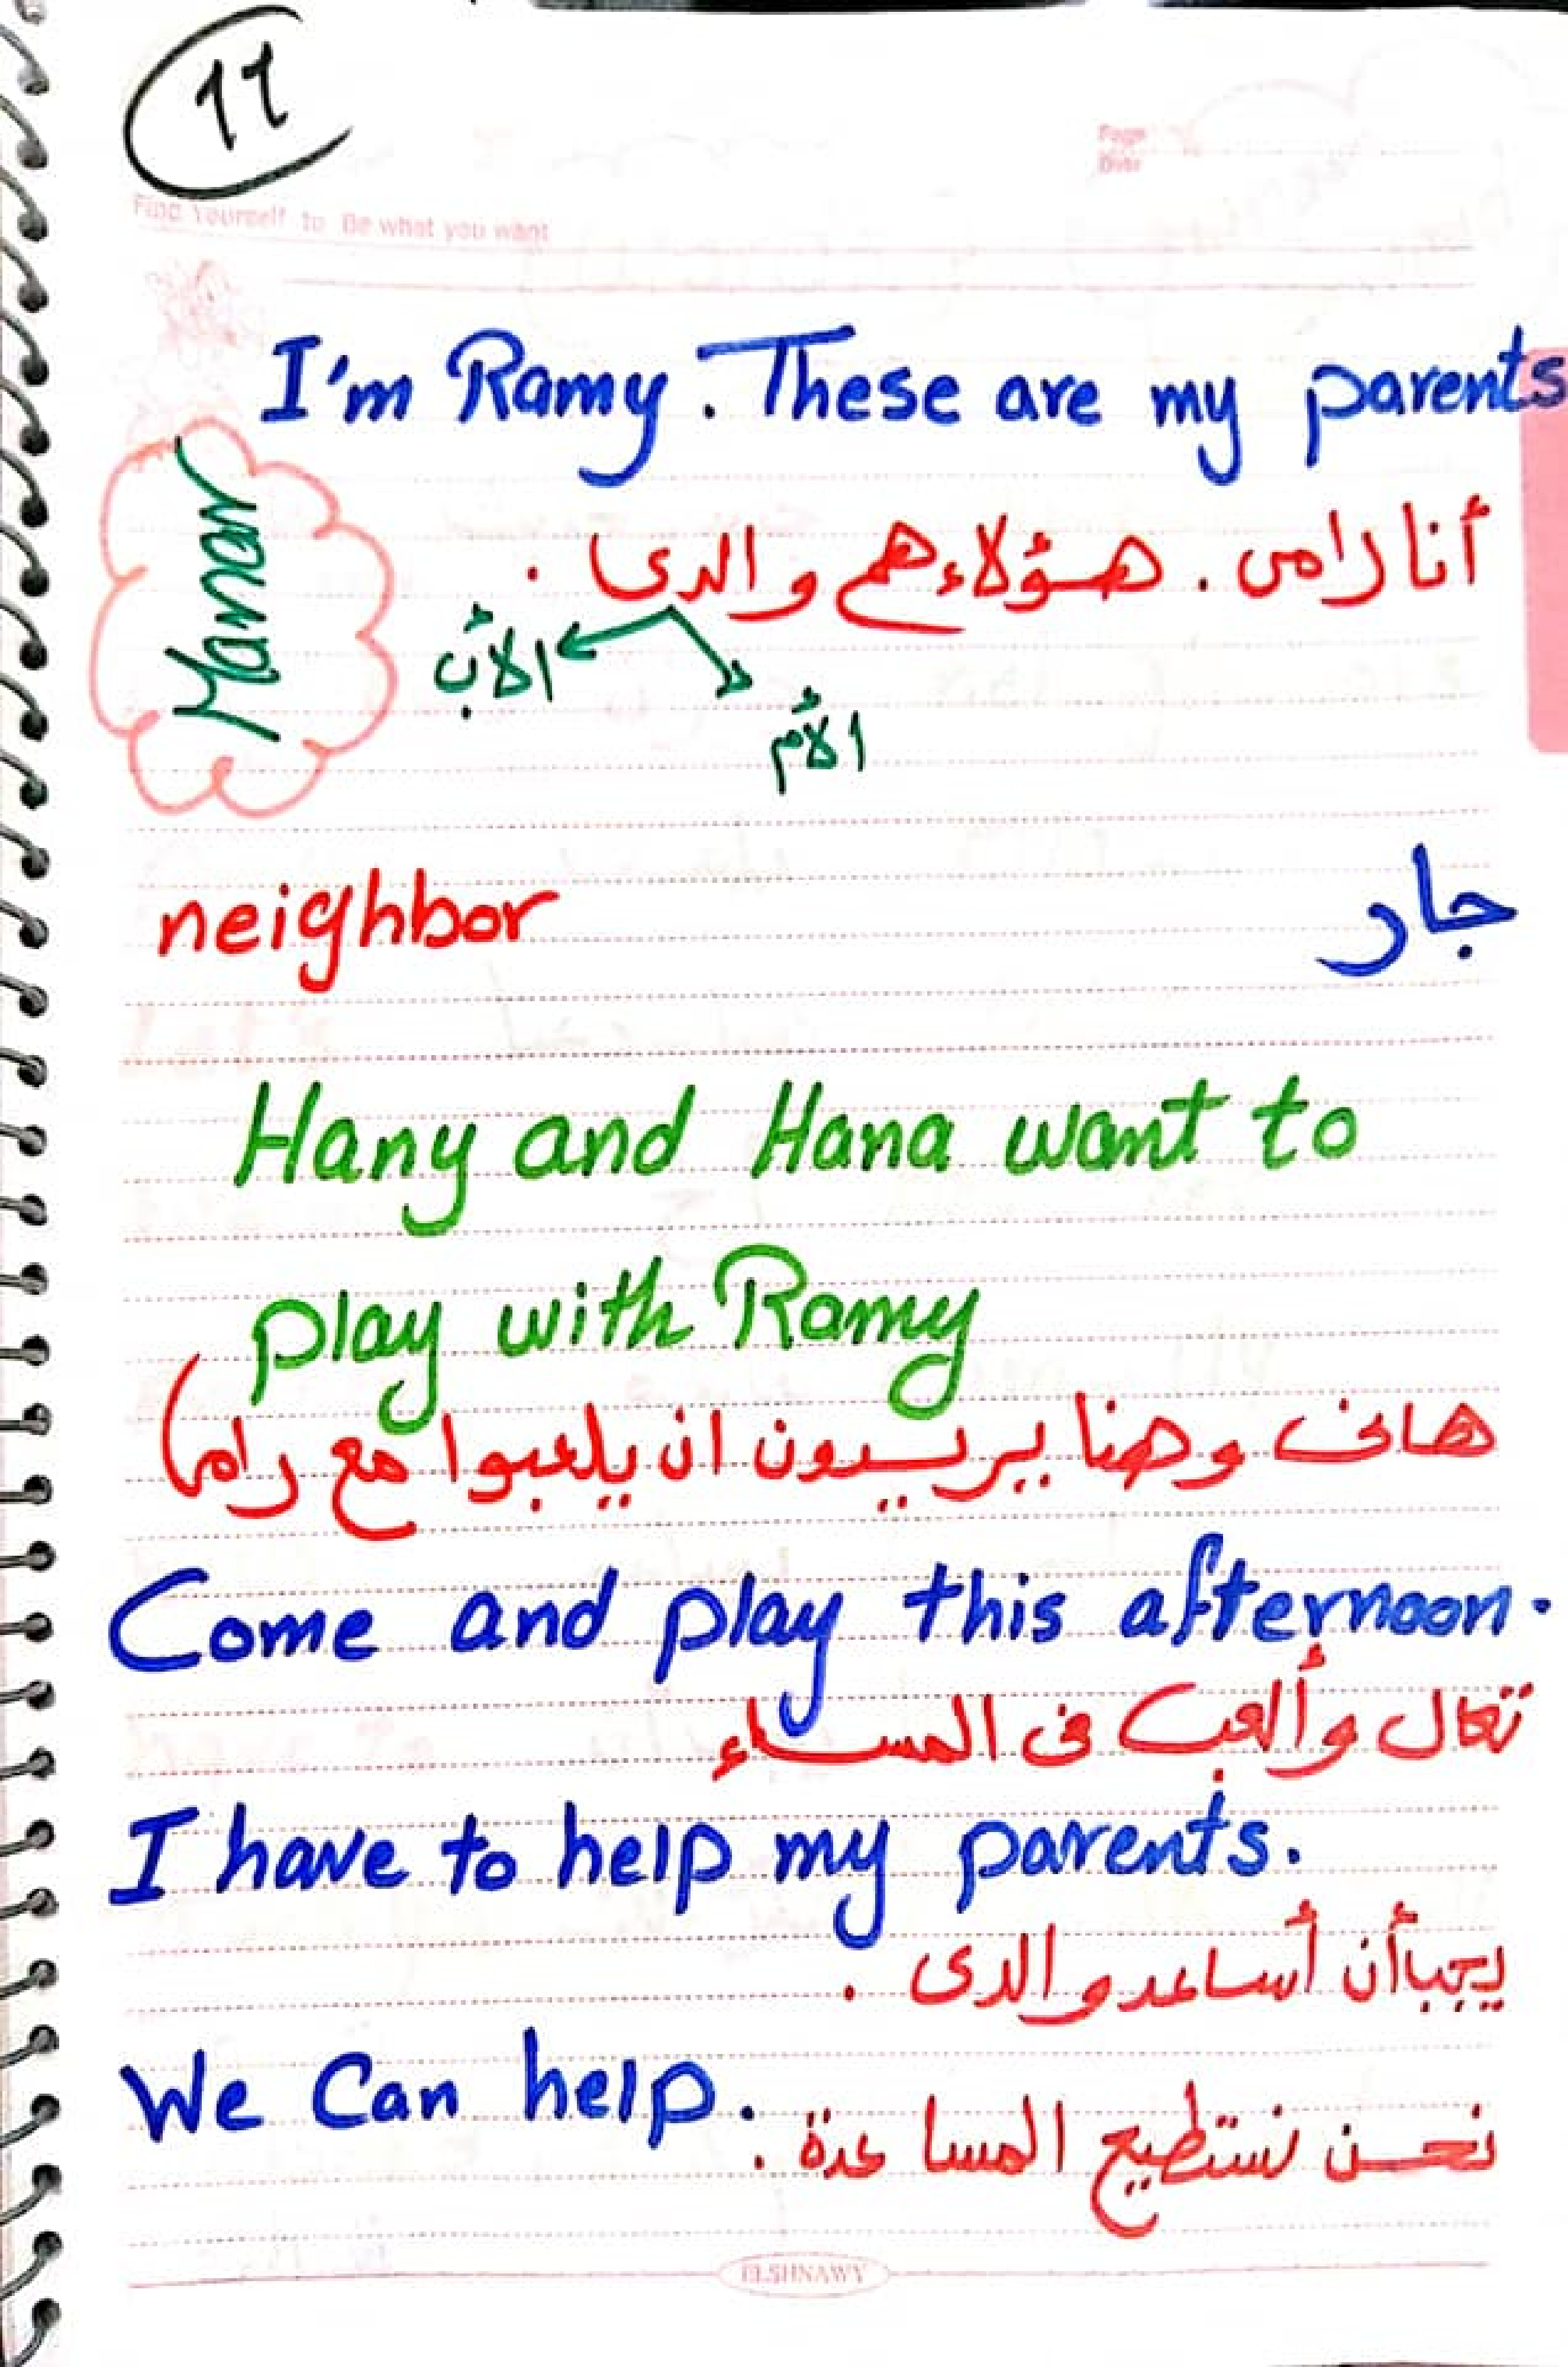 11
Page
Date
Find Yourself to Be what you want
I'm Ramy. These are my parents
أنا رامى. هؤلاء هم والدى.
الأب
الأم
Manar
neighbor جار
Hany and Hana want to
play with Ramy
هانى وهنا يريدون ان يلعبوا مع رامى
Come and play this afternoon.
تعال وألعب فى المساء
I have to help my parents.
يجب أن أساعد والدى.
We Can help. نحن نستطيع المساعدة.
ELSHNAWY